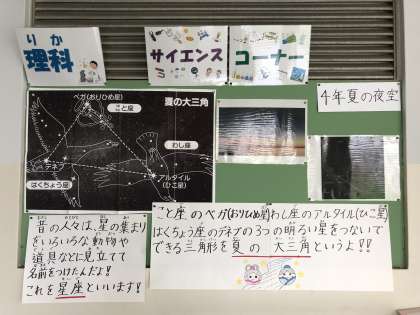 りか
理科
サイエンス
コーナー
4年夏の夜空
夏の大三角
ベガ(おりひめ座)
こと座
わし座
デネブ
アルタイル
(ひこ星)
はくちょう座
昔の人々は、星の集まり
をいろいろな動物や
道具などに見立てて
名前をつけたんだよ!
これを星座といいます!
こと座のベガ(おりひめ星)わし座のアルタイル(ひこ星)
はくちょう座のデネブの3つの明るい星をつないで
できる三角形を夏の大三角というよ!!